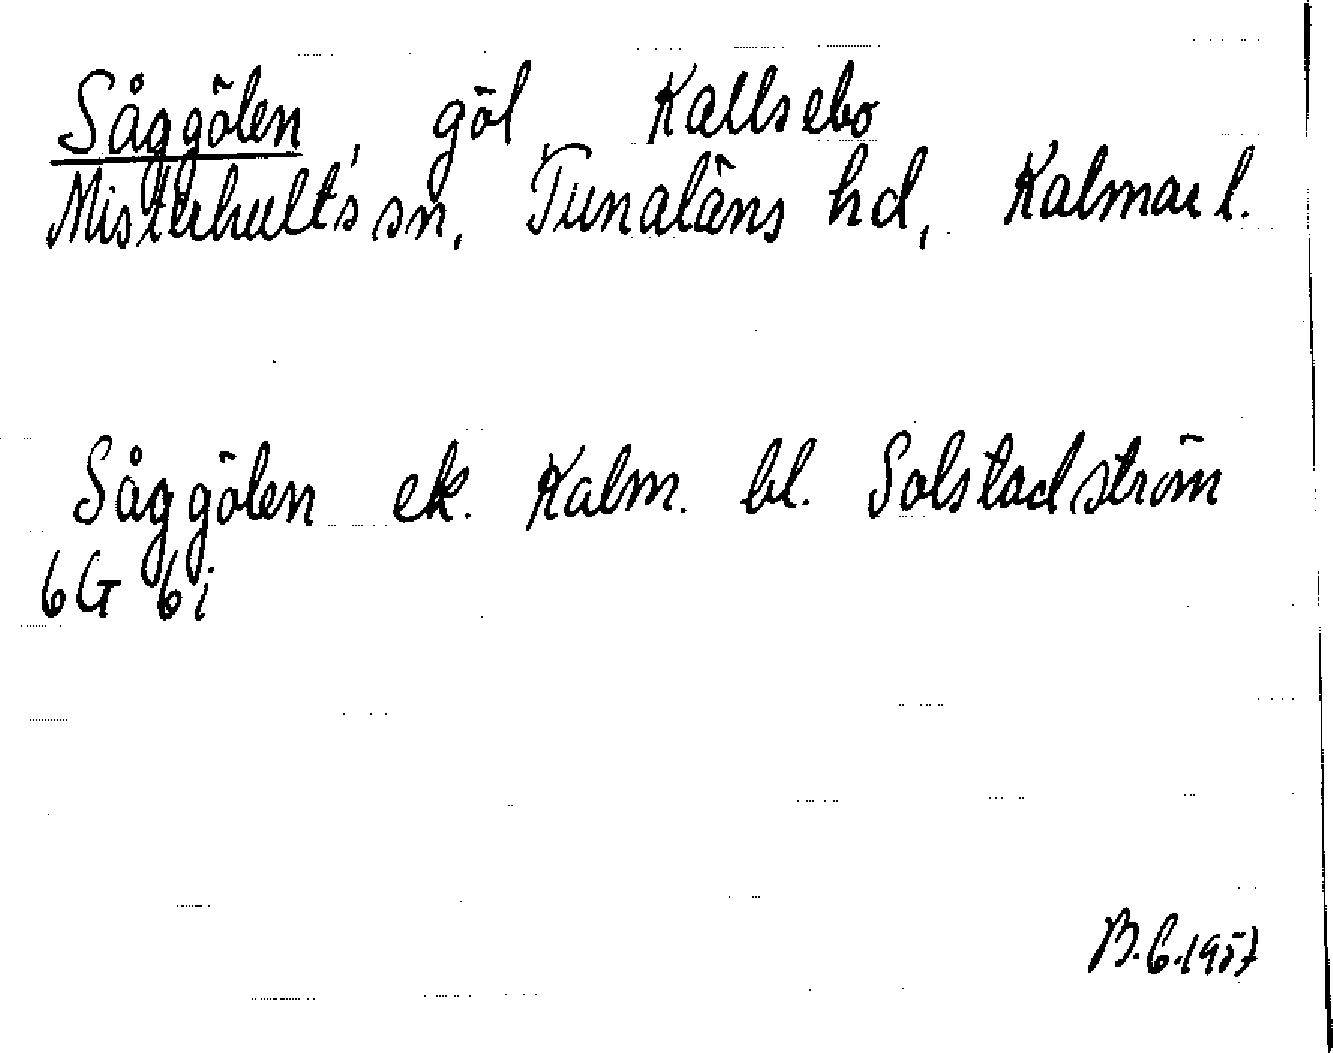 Såggölen, göl, Kallsebo
Misterhults sn, Tunaläns hd, Kalmar l.
Såggölen ek. Kalm. bl. Solstadström
6G 6i
B.G.1957